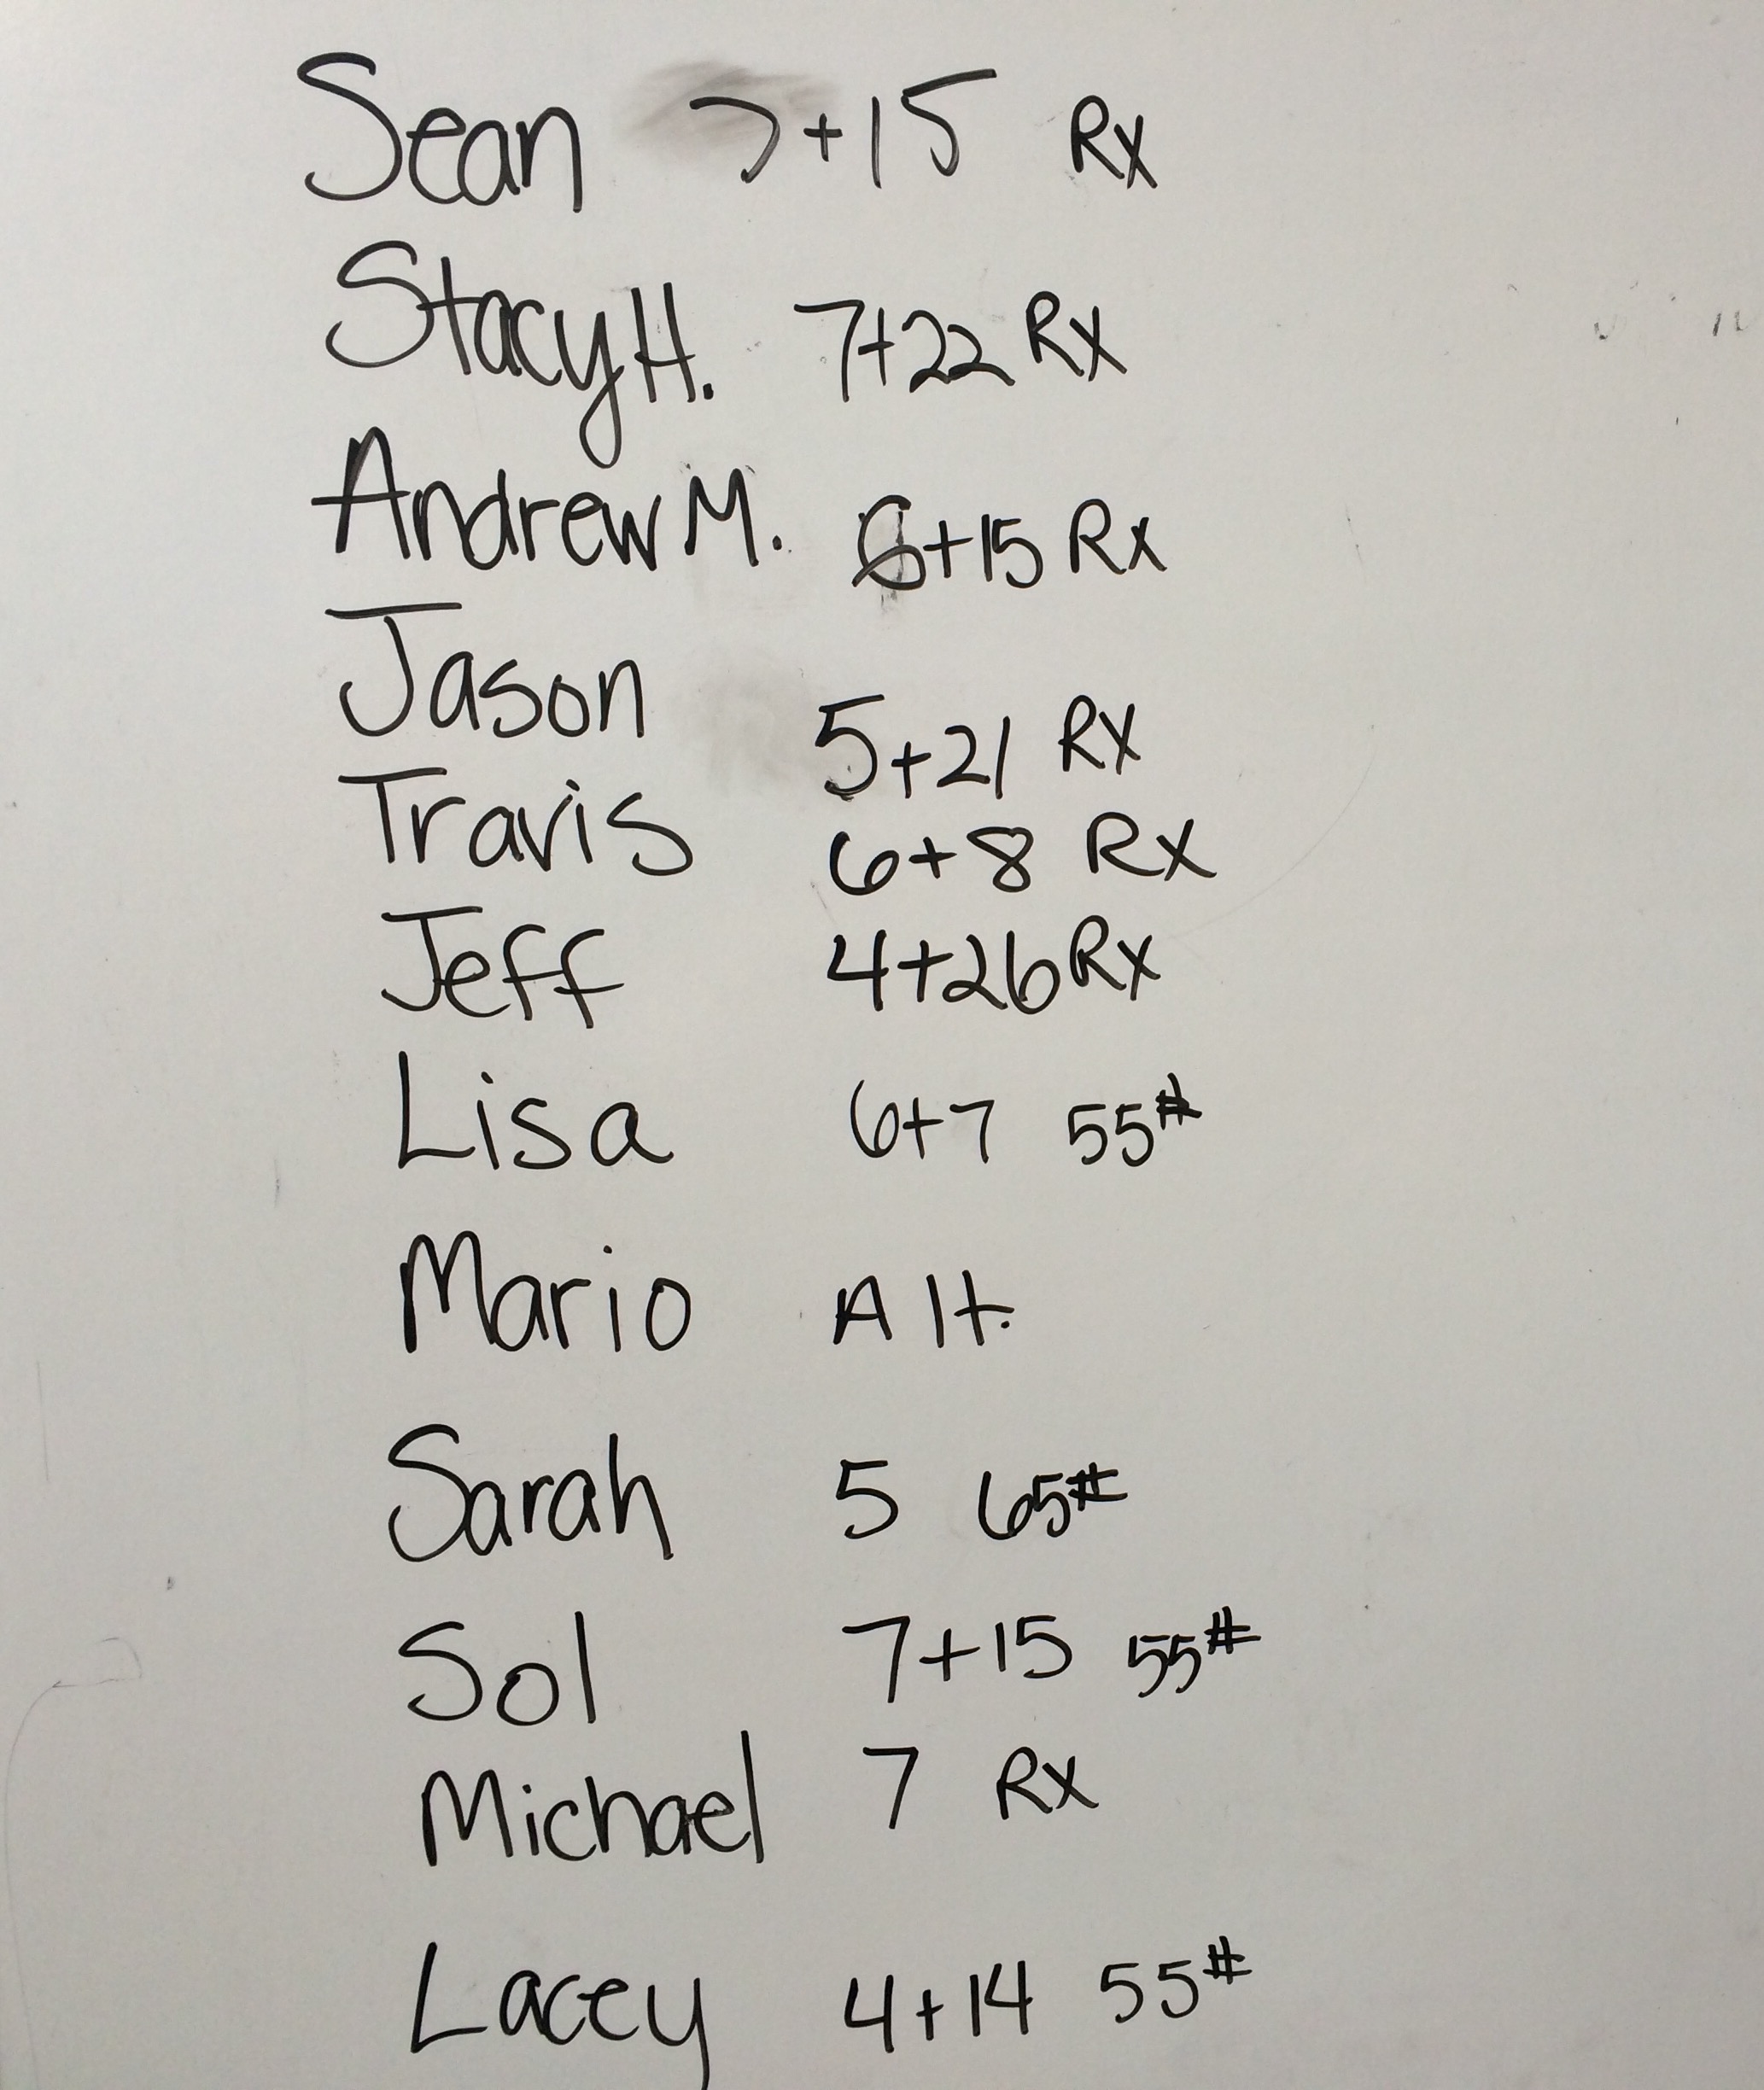 Sean 7+15 Rx
Stacy H. 7+22 Rx
Andrew M. 6+15 Rx
Jason 5+21 Rx
Travis 6+8 Rx
Jeff 4+26 Rx
Lisa 6+7 55#
Mario Alt.
Sarah 5 65#
Sol 7+15 55#
Michael 7 Rx
Lacey 4+14 55#